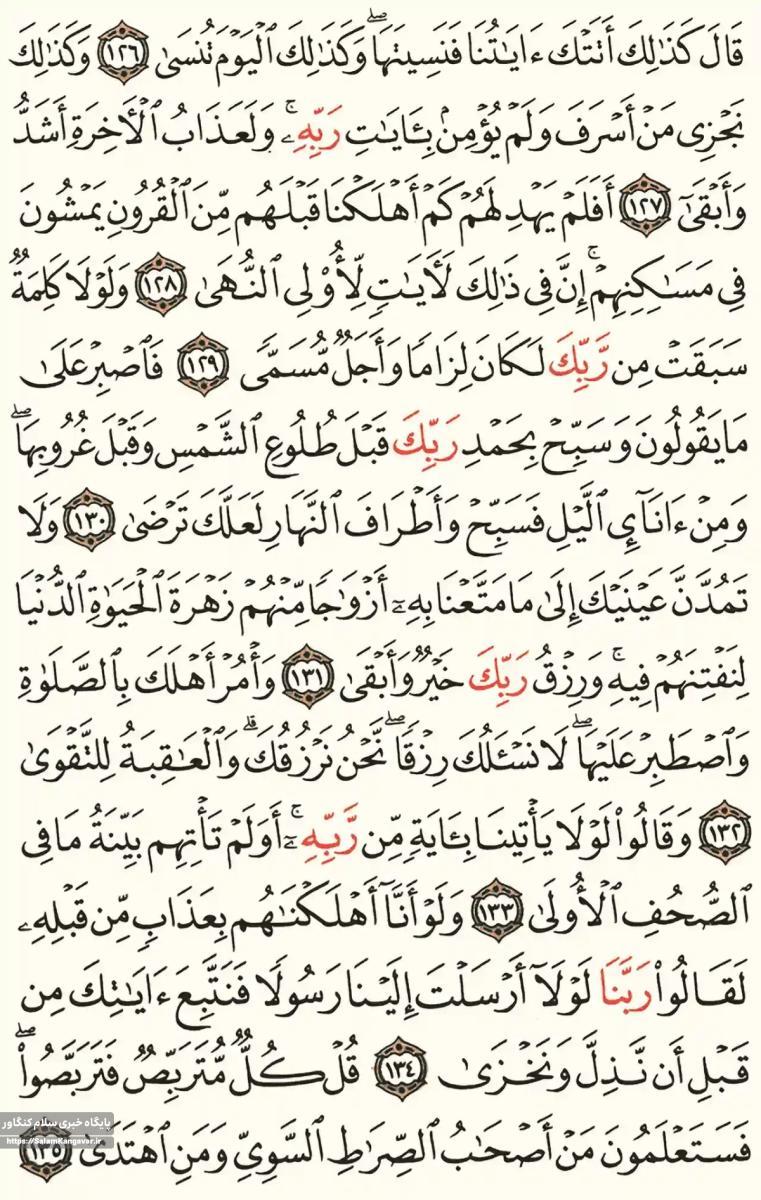 قَالَ كَذَٰلِكَ أَتَتْكَ ءَايَٰتُنَا فَنَسِيتَهَاۖ وَكَذَٰلِكَ ٱلْيَوْمَ تُنسَىٰ ١٢٦ وَكَذَٰلِكَ
نَجْزِى مَنْ أَسْرَفَ وَلَمْ يُؤْمِنۢ بِـَٔايَٰتِ رَبِّهِۦۚ وَلَعَذَابُ ٱلْأٓخِرَةِ أَشَدُّ
وَأَبْقَىٰٓ ١٢٧ أَفَلَمْ يَهْدِ لَهُمْ كَمْ أَهْلَكْنَا قَبْلَهُم مِّنَ ٱلْقُرُونِ يَمْشُونَ
فِى مَسَٰكِنِهِمْۚ إِنَّ فِى ذَٰلِكَ لَأٓيَٰتٍ لِّأُو۟لِى ٱلنُّهَىٰ ١٢٨ وَلَوْلَا كَلِمَةٌ
سَبَقَتْ مِن رَّبِّكَ لَكَانَ لِزَامًا وَأَجَلٌ مُّسَمًّى ١٢٩ فَٱصْبِرْ عَلَىٰ
مَا يَقُولُونَ وَسَبِّحْ بِحَمْدِ رَبِّكَ قَبْلَ طُلُوعِ ٱلشَّمْسِ وَقَبْلَ غُرُوبِهَاۖ
وَمِنْ ءَانَآئِ ٱلَّيْلِ فَسَبِّحْ وَأَطْرَافَ ٱلنَّهَارِ لَعَلَّكَ تَرْضَىٰ ١٣٠ وَلَا
تَمُدَّنَّ عَيْنَيْكَ إِلَىٰ مَا مَتَّعْنَا بِهِۦٓ أَزْوَٰجًا مِّنْهُمْ زَهْرَةَ ٱلْحَيَوٰةِ ٱلدُّنْيَا
لِنَفْتِنَهُمْ فِيهِۚ وَرِزْقُ رَبِّكَ خَيْرٌ وَأَبْقَىٰ ١٣١ وَأْمُرْ أَهْلَكَ بِٱلصَّلَوٰةِ
وَٱصْطَبِرْ عَلَيْهَاۖ لَا نَسْـَٔلُكَ رِزْقًاۖ نَّحْنُ نَرْزُقُكَۗ وَٱلْعَٰقِبَةُ لِلتَّقْوَىٰ
١٣٢ وَقَالُوا۟ لَوْلَا يَأْتِينَا بِـَٔايَةٍ مِّن رَّبِّهِۦٓۚ أَوَلَمْ تَأْتِهِم بَيِّنَةُ مَا فِى
ٱلصُّحُفِ ٱلْأُولَىٰ ١٣٣ وَلَوْ أَنَّآ أَهْلَكْنَٰهُم بِعَذَابٍ مِّن قَبْلِهِۦ
لَقَالُوا۟ رَبَّنَا لَوْلَآ أَرْسَلْتَ إِلَيْنَا رَسُولًا فَنَتَّبِعَ ءَايَٰتِكَ مِن
قَبْلِ أَن نَّذِلَّ وَنَخْزَىٰ ١٣٤ قُلْ كُلٌّ مُّتَرَبِّصٌ فَتَرَبَّصُوا۟ۖ
فَسَتَعْلَمُونَ مَنْ أَصْحَٰبُ ٱلصِّرَٰطِ ٱلسَّوِىِّ وَمَنِ ٱهْتَدَىٰ ١٣٥
پایگاه خبری سلام کنگاور
https://SalamKangavar.ir